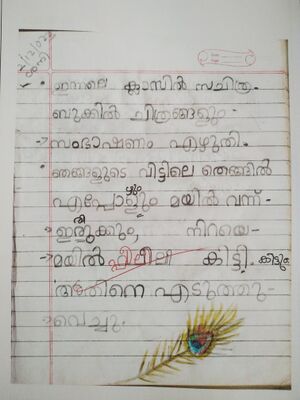 2/12/022
ഇന്നലെ ക്ലാസിൽ സചിത്ര-
ബുക്കിൽ ചിത്രങ്ങളും
സംഭാഷണം എഴുതി.
ഞങ്ങളുടെ വീട്ടിലെ തെങ്ങിൽ
എപ്പോളും മയിൽ വന്ന്-
ഇരുക്കും, നിറയെ-
മയിൽ പ്പീലി കിട്ടി. കിട്ടും
അതിനെ എടുത്തു-
വെച്ചു.